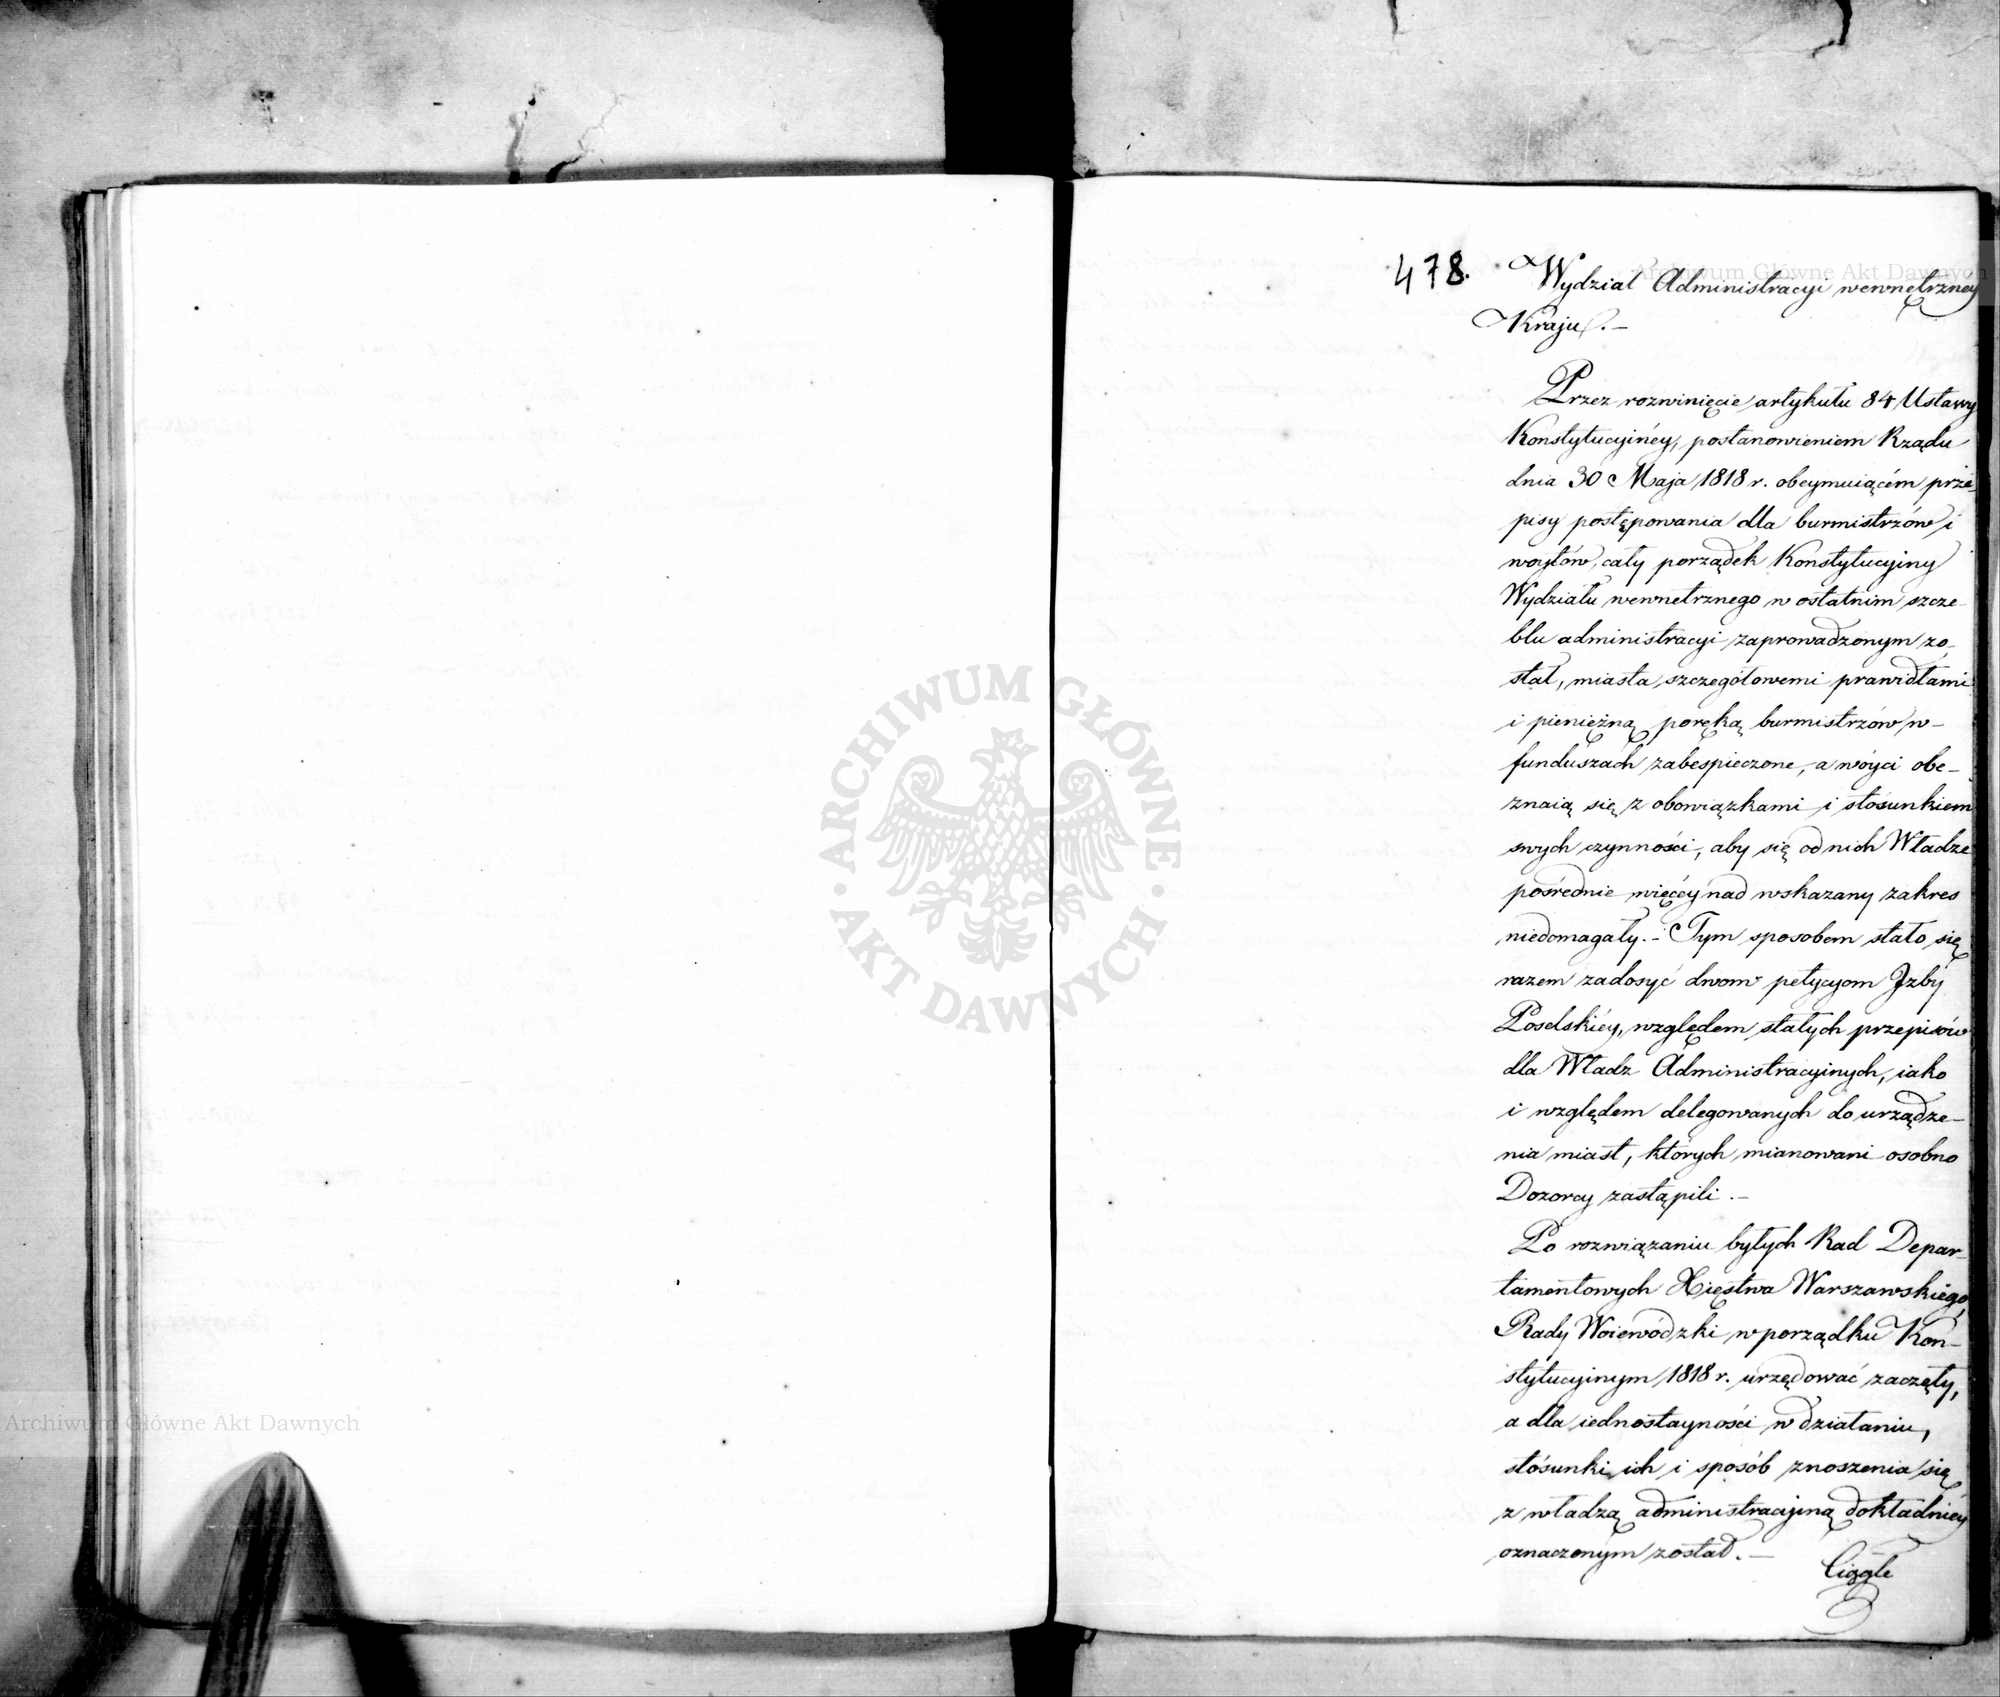 478.
Wydział Administracyi wewnętrzney
Kraju.—
Przez rozwinięcie artykułu 84 Ustawy
Konstytucyjnéy, postanowieniem Rządu
dnia 30 Maja 1818 r. obeymuiącém prze-
pisy postępowania dla burmistrzów i
woytów, cały porządek Konstytucyjny
Wydziału wewnetrznego w ostatnim szcze-
blu administracyi zaprowadzonym zo-
stał, miasta szczegółowemi prawidłami
i pieniężną poręką burmistrzów w-
funduszach zabespieczone, a wóyci obe-
znaią się z obowiązkami i stósunkiem
swych czynności, aby się od nich Władze
pośrednie więcéy nad wskazany zakres
niedomagały.— Tym sposobem stało się
razem zadosyć dwom petycyom Jzby
Poselskiéy, względem stałych przepisów
dla Władz Administracyjnych, iako
i względem delegowanych do urządze-
nia miast, których mianowani osobno
Dozorcy zastąpili.—
Po rozwiązaniu byłych Rad Depar-
tamentowych Xięstwa Warszawskiego,
Rady Woiewódzki w porządku Kon-
stytucyjnym 1818 r. urzędować zaczęły,
a dla iednostayności w działaniu,
stósunki ich i sposób znoszenia się
z władzą administracijną dokładniéy
oznaczonym został.—
Ciągle
Archiwum Główne Akt Dawnych
Archiwum Główne Akt Dawnych
ARCHIWUM GŁÓWNE
AKT DAWNYCH